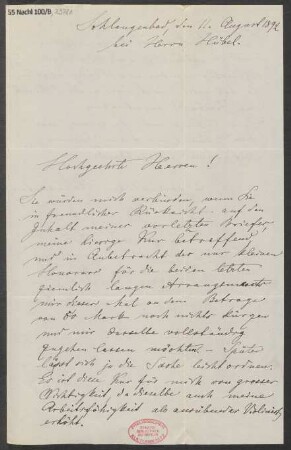 55 Nachl 100/B,
Schlangenbad, den 11. August 1892
bei Herrn Hübel.
Hochgeehrte Herren!
Sie würden mich verbinden, wenn Sie
in freundlicher Rücksicht auf den
Inhalt meines vorletzten Briefes,
meine hiesige Kur betreffend,
und in Anbetracht der nur kleinen
Honorare für die beiden letzten
ziemlich langen Arrangements
mir dieses Mal an dem Betrage
von Mark noch nichts kürzen
und mir denselben vollständig
zugehen lassen möchten. – Später
lässt sich ja die Sache leicht ordnen.
Es ist diese Kur für mich von grosser
Wichtigkeit, da dieselbe auch meine
Arbeitsfähigkeit als ausübender Violinist
erhöht.